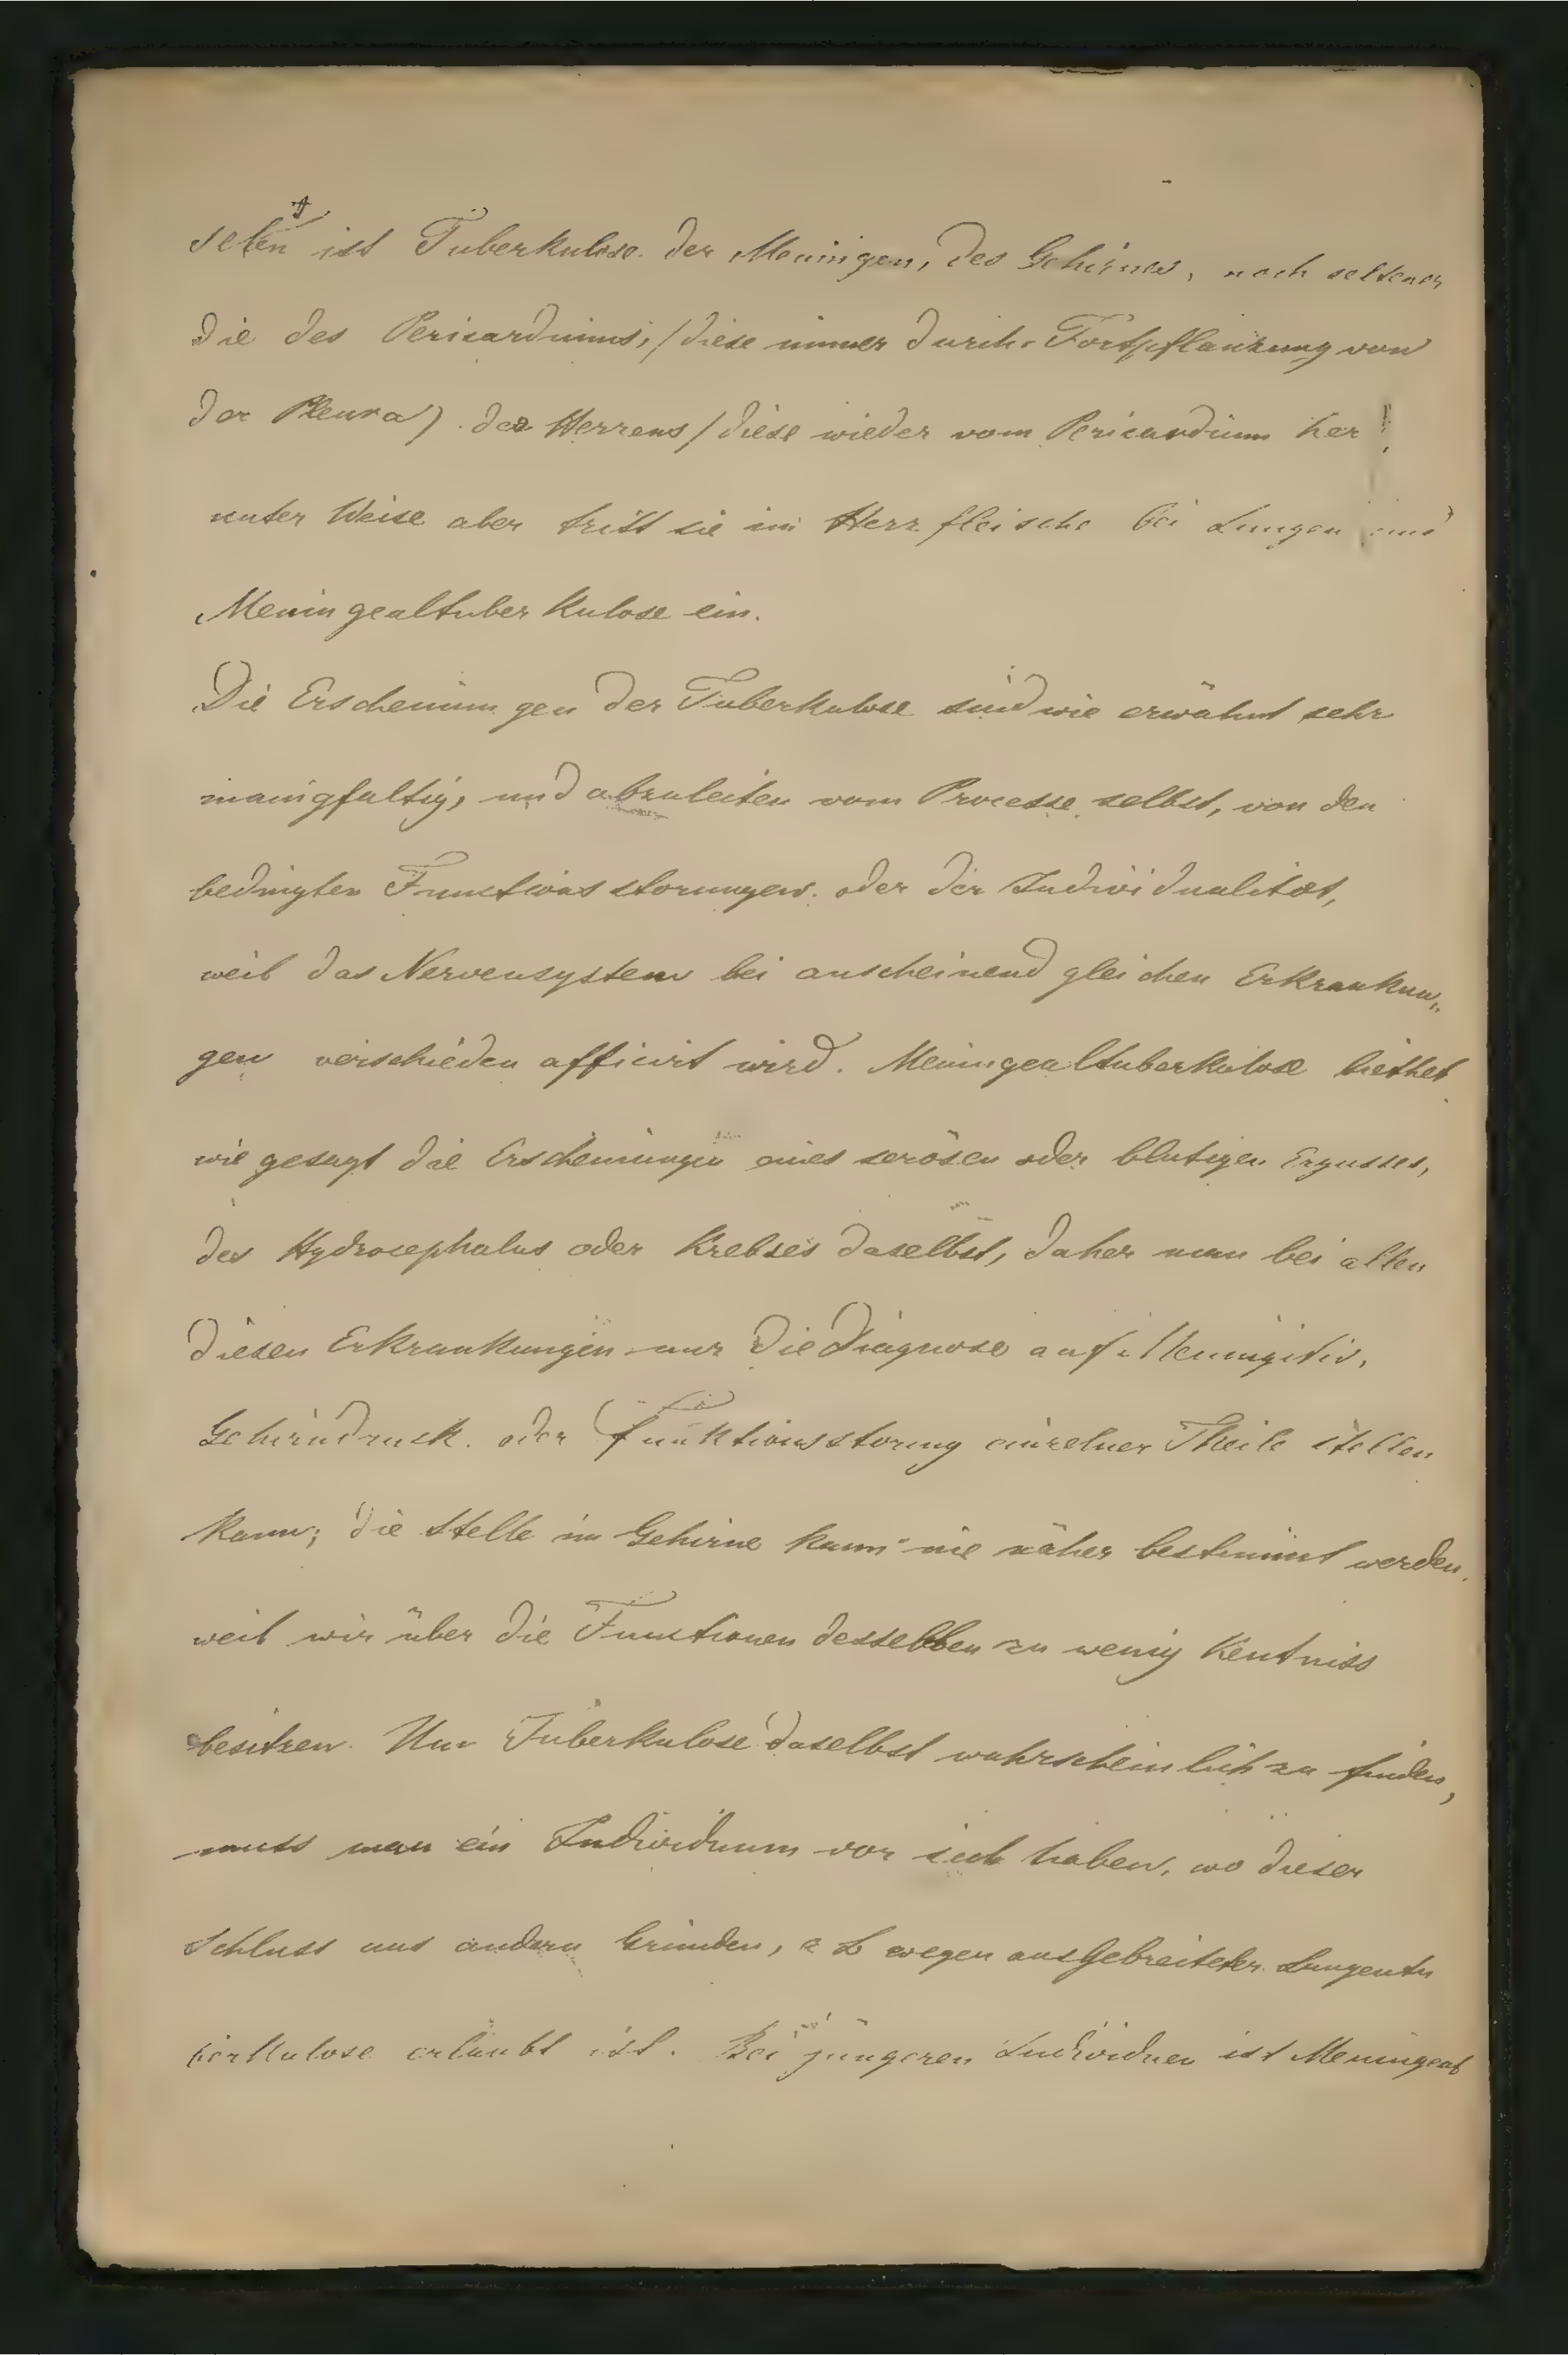 selten ist Tuberkulose der Meningen, des Gehirnes, noch seltener
die des Pericardiums, /diese immer durch Fortpflanzung von
der Pleura) des Herzens /diese wieder vom Pericardium her
unter Weise aber tritt sie im Herzfleische bei Lungen und
Meningealtuberkulose ein.
Die Erscheinungen der Tuberkulose sind wie erwähnt sehr
manigfaltig, und abzuleiten vom Processe selbst, von den
bedingten Functionsstorungen oder der Individualitæt,
weil das Nervensystem bei anscheinend gleichen Erkrankun„
gen verschieden afficirt wird. Meningealtuberkulose biethet
wie gesagt die Erscheinungen eines serösen oder blutigen Ergusses,
des Hydrocephalus oder Krebses daselbst, daher man bei allen
diesen Erkrankungen nur die Diagnose auf Meningitis,
Gehirndruck oder Funktionsstorung einzelner Theile stellen
kann; die Stelle im Gehirne kann nie näher bestimmt werden.
weil wir über die Functionen desselben zu wenig Kentniss
besitzen. Um Tuberkulose daselbst wahrscheinlich zu finden,
muss man ein Individuum vor sich haben, wo dieser
Schluss aus andern Gründen, z B wegen ausgebreiteter Lungentu
berkulose erlaubt ist. Bei jüngeren Individuen ist Meningeal